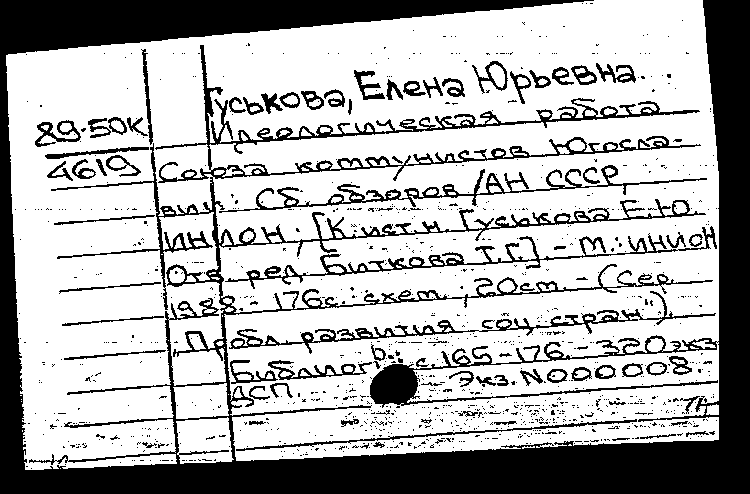 Гуськова, Елена Юрьевна.
89-50К
4619
Идеологическая работа
Союза коммунистов Югосла-
вии: Сб. обзоров /АН СССР,
ИНИОН; [К.ист.н. Гуськова Е.Ю.
Отв. ред. Биткова Т.Г.]. - М.: ИНИОН
1988. - 176с.: схем.; 20см. - (Сер.
"Пробл. развития соц. стран").
Библиогр.: с. 165-176. - 320экз
ДСП. Экз. N000008. -